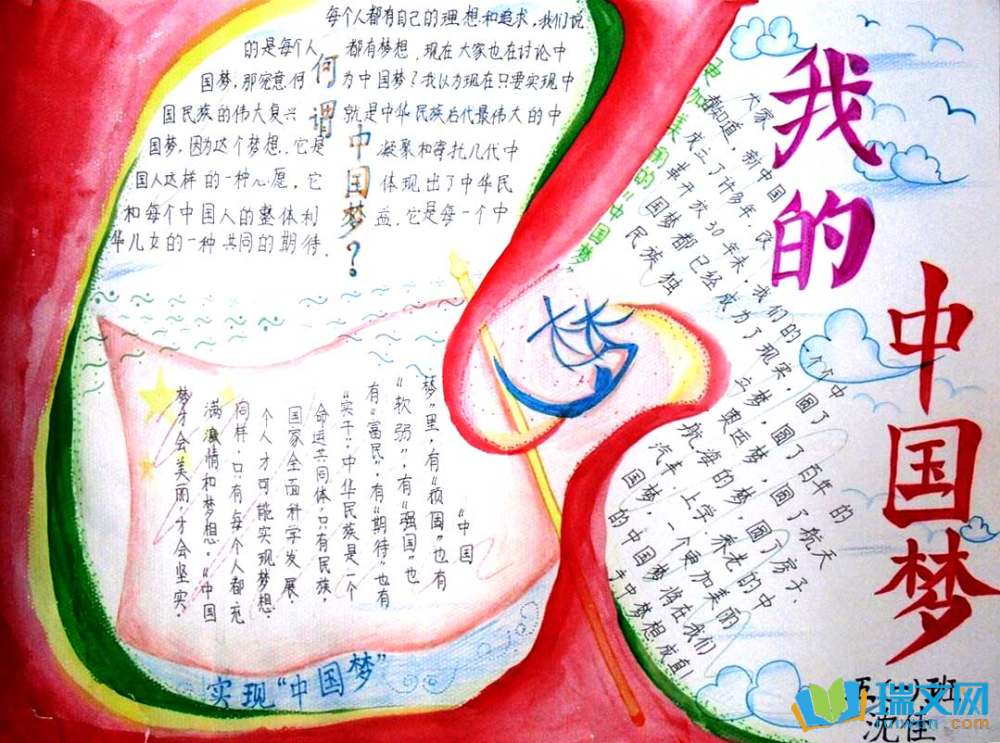 我的
中国梦
五(
)班
沈佳
何谓中国梦?
每个人都有自己的理想和追求,我们说
的是每个人 都有梦想,现在大家也在讨论中
国梦,那究意何 为中国梦?我认为现在只要实现中
国民族的伟大复兴 就是中华民族后代最伟大的中
国梦,因为这个梦想,它是 凝聚和寄托几代中
国人这样的一种心愿,它 体现出了中华民
和每个中国人的整体利 益,它是每一个中
华儿女的一种共同的期待.
梦
更加美丽的"中国梦
大家
都知道,新中国
成立了许多年,改
革开放30年来,我们的一个个中
国梦都已经成为了现实,圆了百年的
民族独立梦,奥运梦,圆了航天
航海的梦,圆了房子、
汽车、上学、养老的中
国梦,一个更加美丽
的中国梦将在我们
手中梦想成真!
"中国
梦"里,有"顽固"也有
"软弱",有"强国"也
有"富民",有"期待"也有
"实干",中华民族是一个
命运共同体,只有民族,
国家全面科学发展,
个人才可能实现梦想.
同样,只有每个人都充
满激情和梦想,"中国
梦才会美丽,才会坚实.
实现"中国梦"
瑞文网